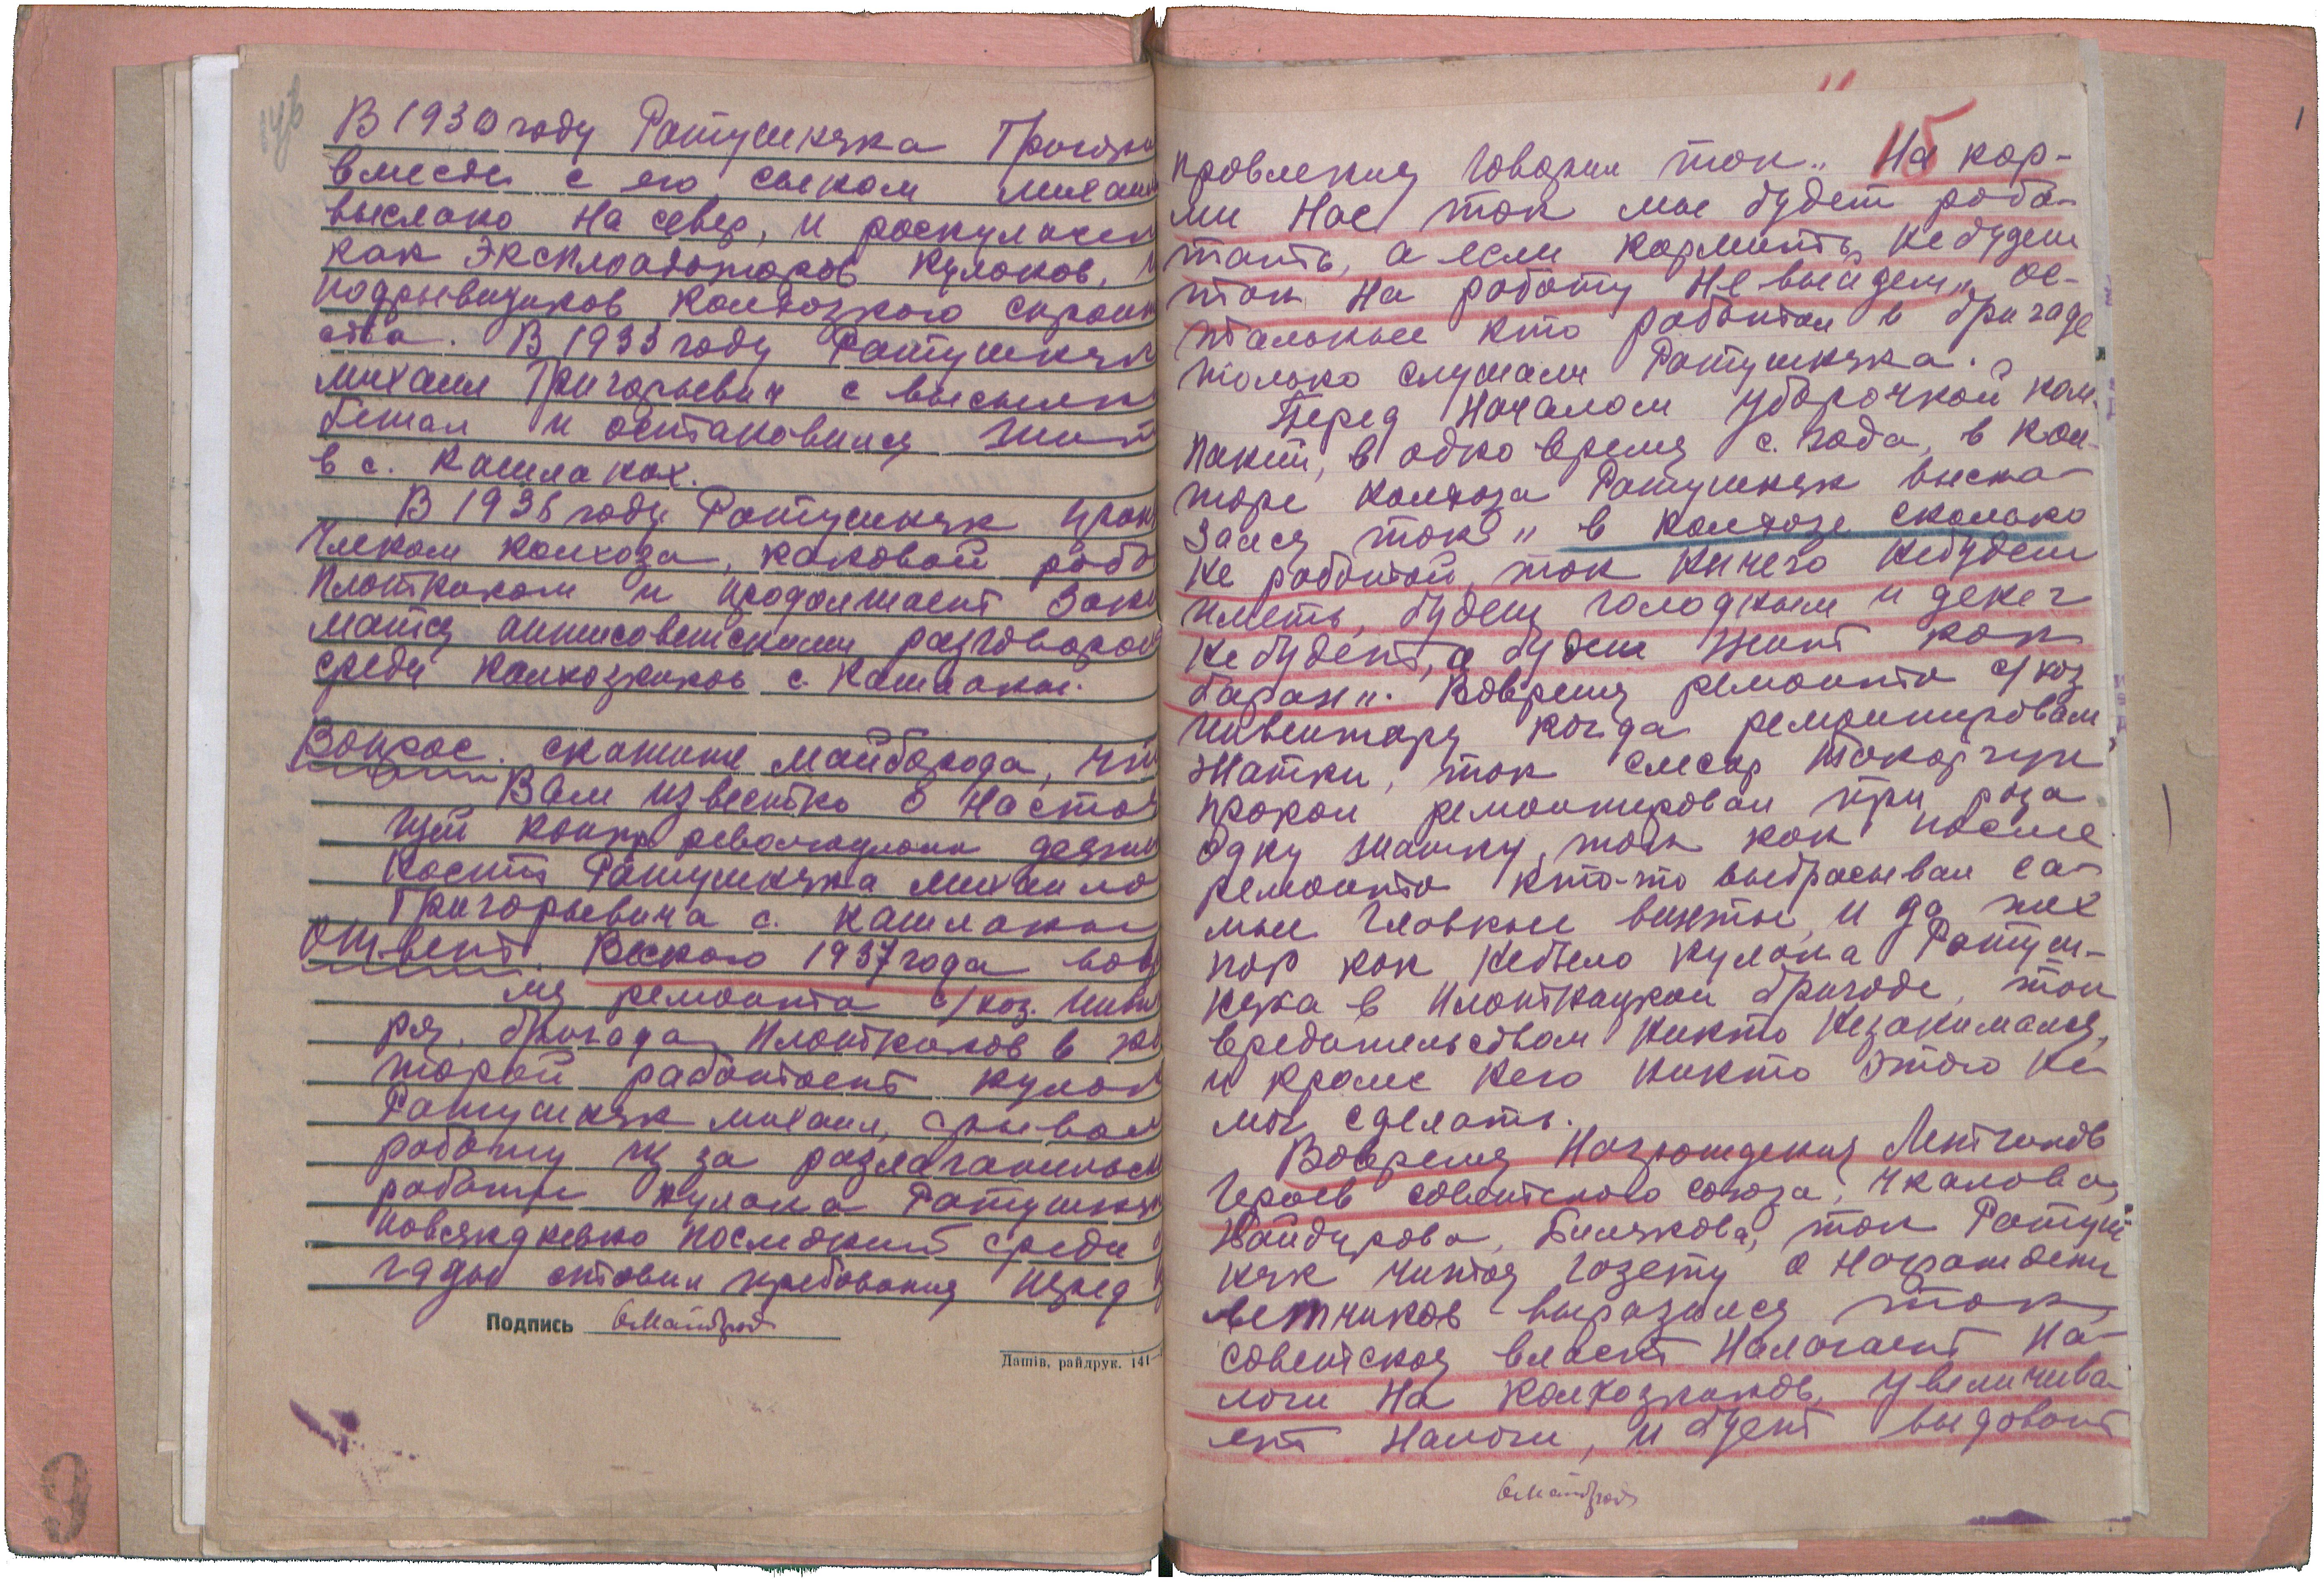 14об
В 1930 году Ратушняка Григори
вместе с его сыном михаи
выслано на север, и роскулачен
как Эксплоататоров Кулоков, и
подрывщиков колхозного строит
ства. В 1933 году Ратушняк
михаил Григорьевич с высылк
бежал и остановился жит
в с. Кашлаках.
В 1936 году Ратушняк прон
членом колхоза, каковой робо
плотником и продолжает Зани
матся антисоветскими разговорам
среди колхозников с. Кашлаки.
Вопрос. скажите Майборода, что
Вам известно о насто
щей контрреволюционн деятел
ности Ратушняка михаило
Григорьевича с. Кашлаки
Ответ. Весною 1937 года вовр
мя ремонта с/хоз. Инве
ря, бригада плотников в ко
торой работает кулак
Ратушняк михаил, срывал
работу из за разлагательн
работы кулака Ратушня
повсякдневно последний среди
гады ставил требования перед
Подпись ОМайбрад
Дашів, райдрук. 141
15
провления говорил ток „На кор-
ми Нас ток мы будем робо-
тать, а если кормить небудеш
ток на работу не выйдем„ ос-
тальные кто работал в бригаде
только слушали Ратушняка.
Перед началом уборочной ком-
пании, в одно время с. года, в кон-
торе колхоза Ратушняк выска-
зался ток „в колхозе сколько
не работай, ток ничего небудеш
иметь, будеш голодным и денег
небудет, а будеш жит как
баран„. Вовремя ремонта с/хоз
инвентаря когда ремонтировали
жатки, ток слесар Токарчук
прокоп ремонтировал три роза
одну жатку, тогда как после
ремонта кто-то выбрасывал са-
мые гловные винты, и до тих
пор как небыло кулака Ратуш-
няка в плотницкой бригоде, ток
вредительством никто незанимался,
и кроме него никто этого не
мог сделать.
Вовремя Нагрождения Летчиков
Героев советского союза, Чкалова,
Байдукова, Билякова, ток Ратуш
няк читая газету о нограждени
летчиков выразился ток
советская власт налогает на-
логи на колхозников, увеличива
ет налоги, и будет выдоват
ОМайбрад